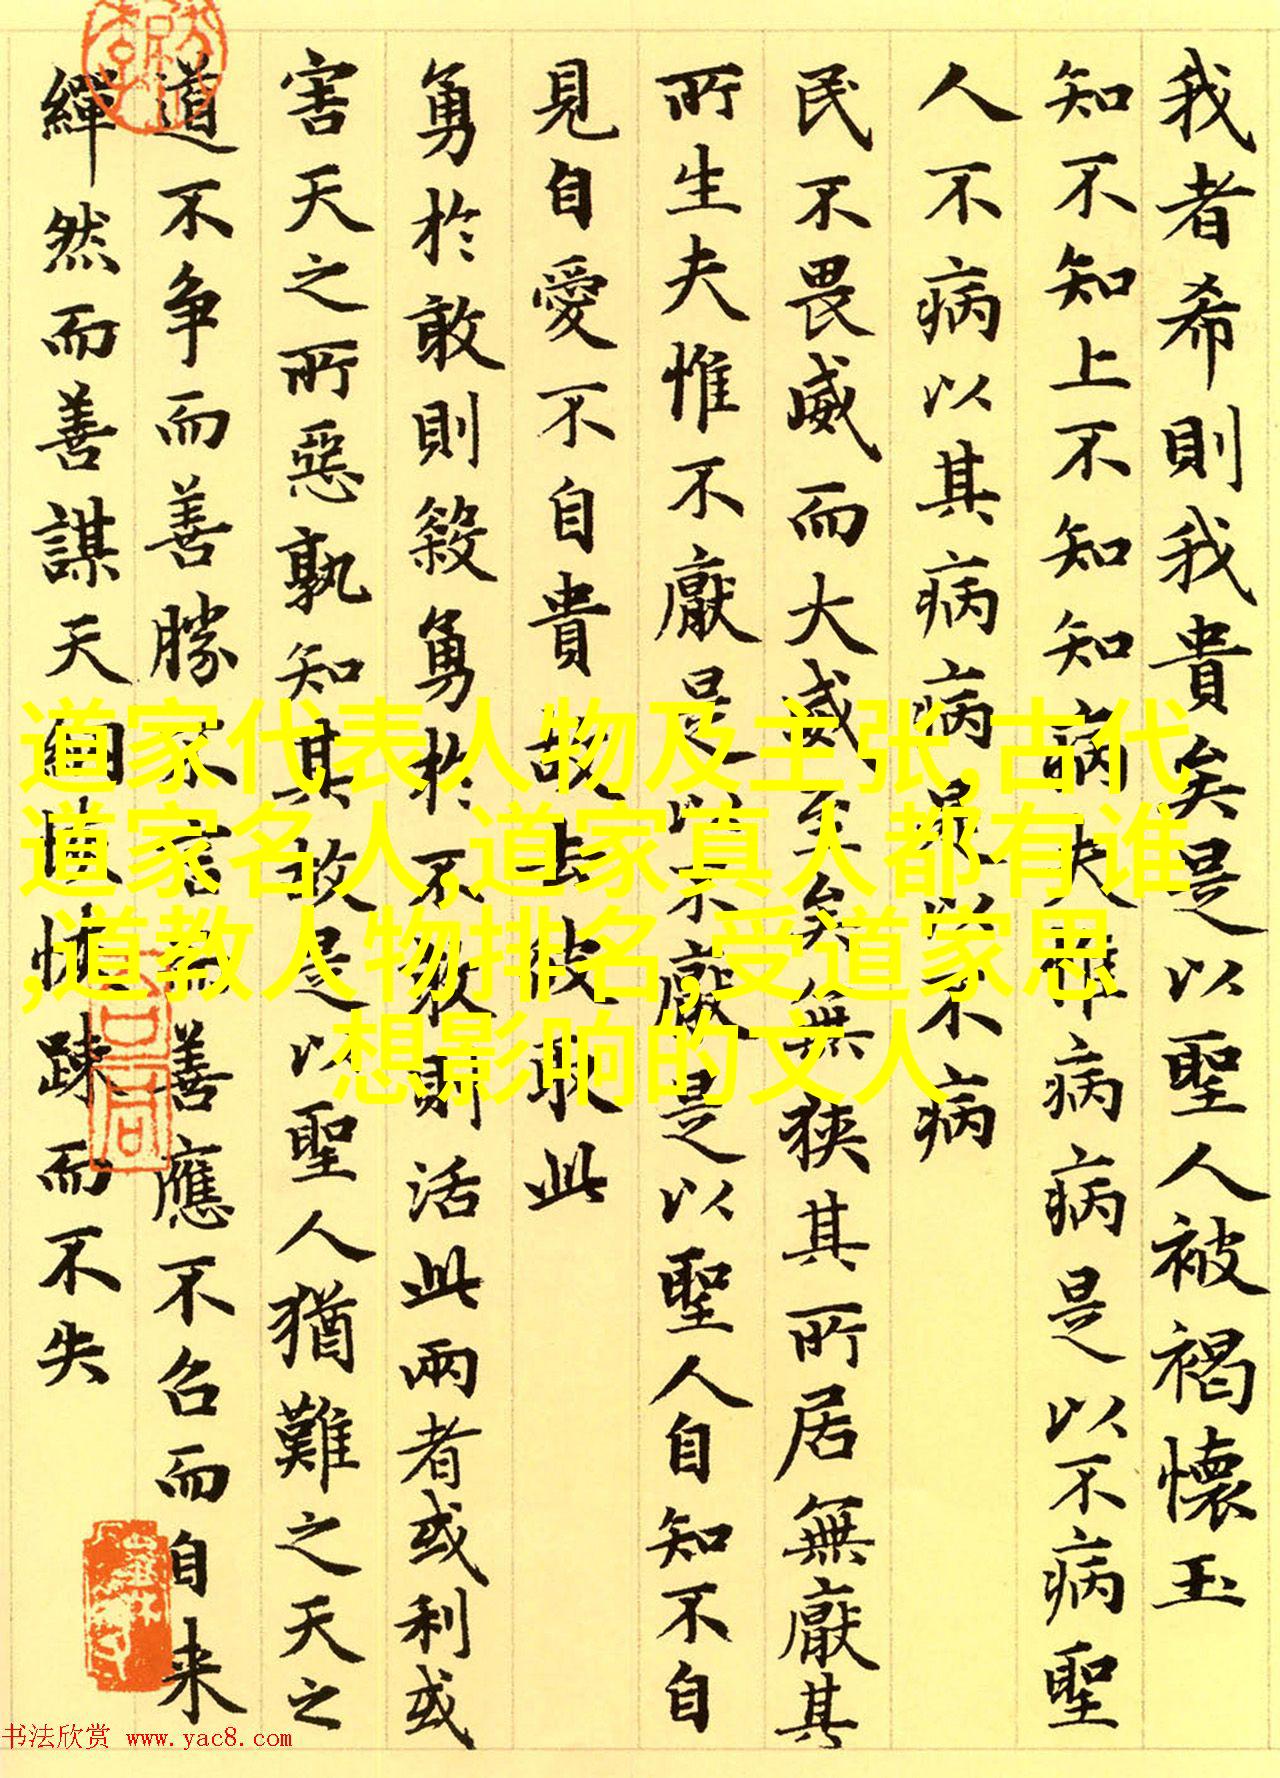 我者希則我貴矣是以聖人被褐懷玉
知不知上不知知病夫唯病病是以不病聖
人不病以其病病是以不病
民不畏威而大威至矣無狹其所居無厭其
所生夫惟不厭是以不厭是以聖人自知不自
見自愛不自貴故去彼取此
勇於敢則殺勇於不敢則活此兩者或利或
害天之所惡孰知其故是以聖人猶難之天之
道不争而善勝不言而善應不召而自来
繟然而善謀天網恢恢疎而不失
道家代表人物及主张,古代
道家名人,道家真人都有谁
,道教人物排名,受道家思
想影响的文人
书法欣赏 www.yac8.com